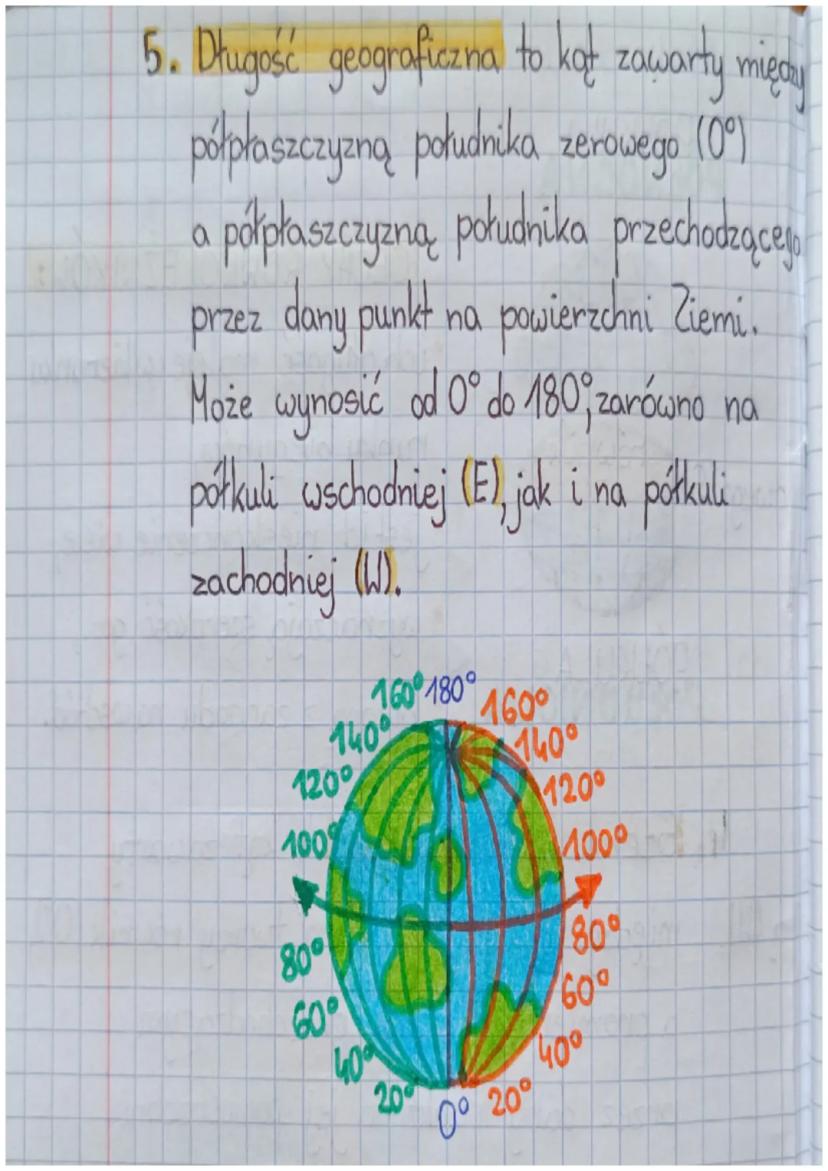 5. Długość geograficzna to kąt zawarty między
półpłaszczyzną południka zerowego (0°)
a półpłaszczyzną południka przechodzącego
przez dany punkt na powierzchni Ziemi.
Może wynosić od 0° do 180°, zarówno na
półkuli wschodniej (E), jak i na półkuli
zachodniej (W).
160° 180° 160°
140° 140°
120° 120°
100° 100°
80° 80°
60° 60°
40° 40°
20° 0° 20°